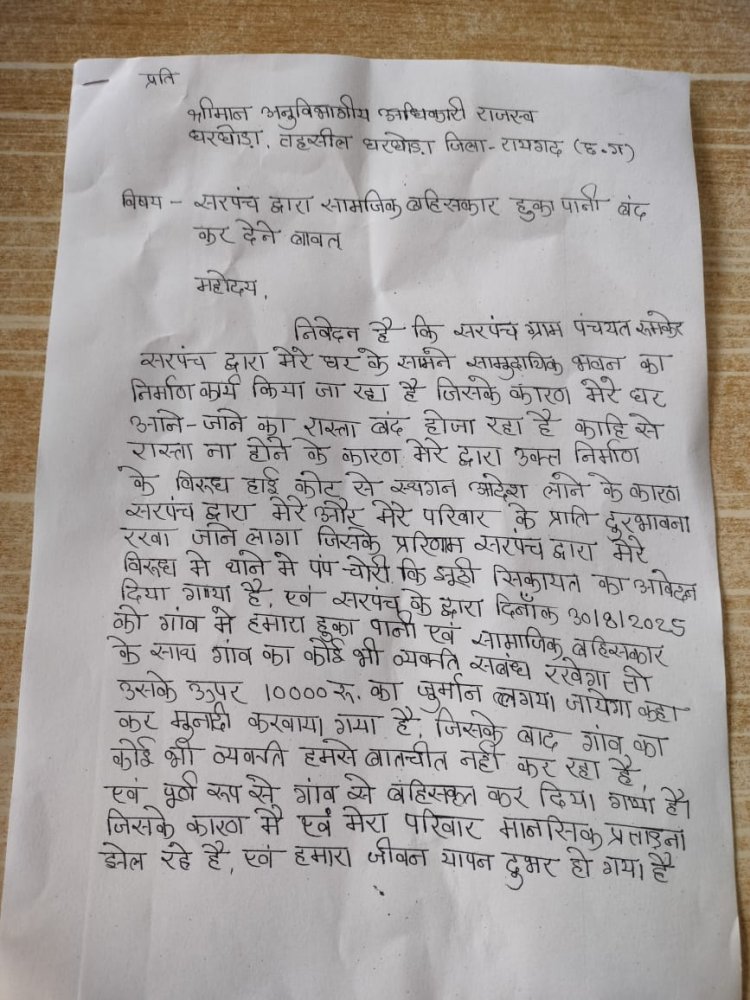 प्रति
श्रीमान अनुविभागीय अधिकारी राजस्व
घरघोड़ा, तहसील घरघोड़ा जिला-रायगढ (छ.ग)
विषय - सरपंच द्वारा सामजिक बहिसकार हुका पानी बंद
कर देने बावत्
महोदय,
निवेदन है कि सरपंच ग्राम पंचयत रूमकेरा
सरपंच द्वारा मेरे घर के सामने सामुदायिक भवन का
निर्माण कार्य किया जा रहा है जिसके कारण मेरे घर
आने-जाने का रास्ता बंद होजा रहा है काहि से
रास्ता ना होने के कारण मेरे द्वारा उक्त निर्माण
के विरूध हाई कोट से स्थगन आदेश लाने के कारण
सरपंच द्वारा मेरे और मेरे परिवार के प्राति दुरभावना
रखा जाने लागा जिसके प्ररिणाम सरपंच द्वारा मेरे
विरूध मे थाने मे पंप चोरी कि झूठी सिकायत का आवेदन
दिया गया है, एवं सरपंच के द्वारा दिनाँक 30/8/2025
को गांव मे हमारा हुका पानी एवं सामाजिक बहिसकार
के साथ गांव का कोई भी व्यक्ति सबंध रखेगा तो
उसके उपर 10000 रू. का जुर्मान लगया जायेगा कहा
कर मुनादी करवाया गया है, जिसके बाद गांव का
कोई भी व्यकति हमसे बातचीत नही कर रहा है
एवं पूर्ण रूप से गांव से बहिसकृत कर दिया गया है।
जिसके कारण मै एवं मेरा परिवार मानसिक प्रताड़ना
झेल रहे है, एवं हमारा जीवन यापन दुभर हो गया है